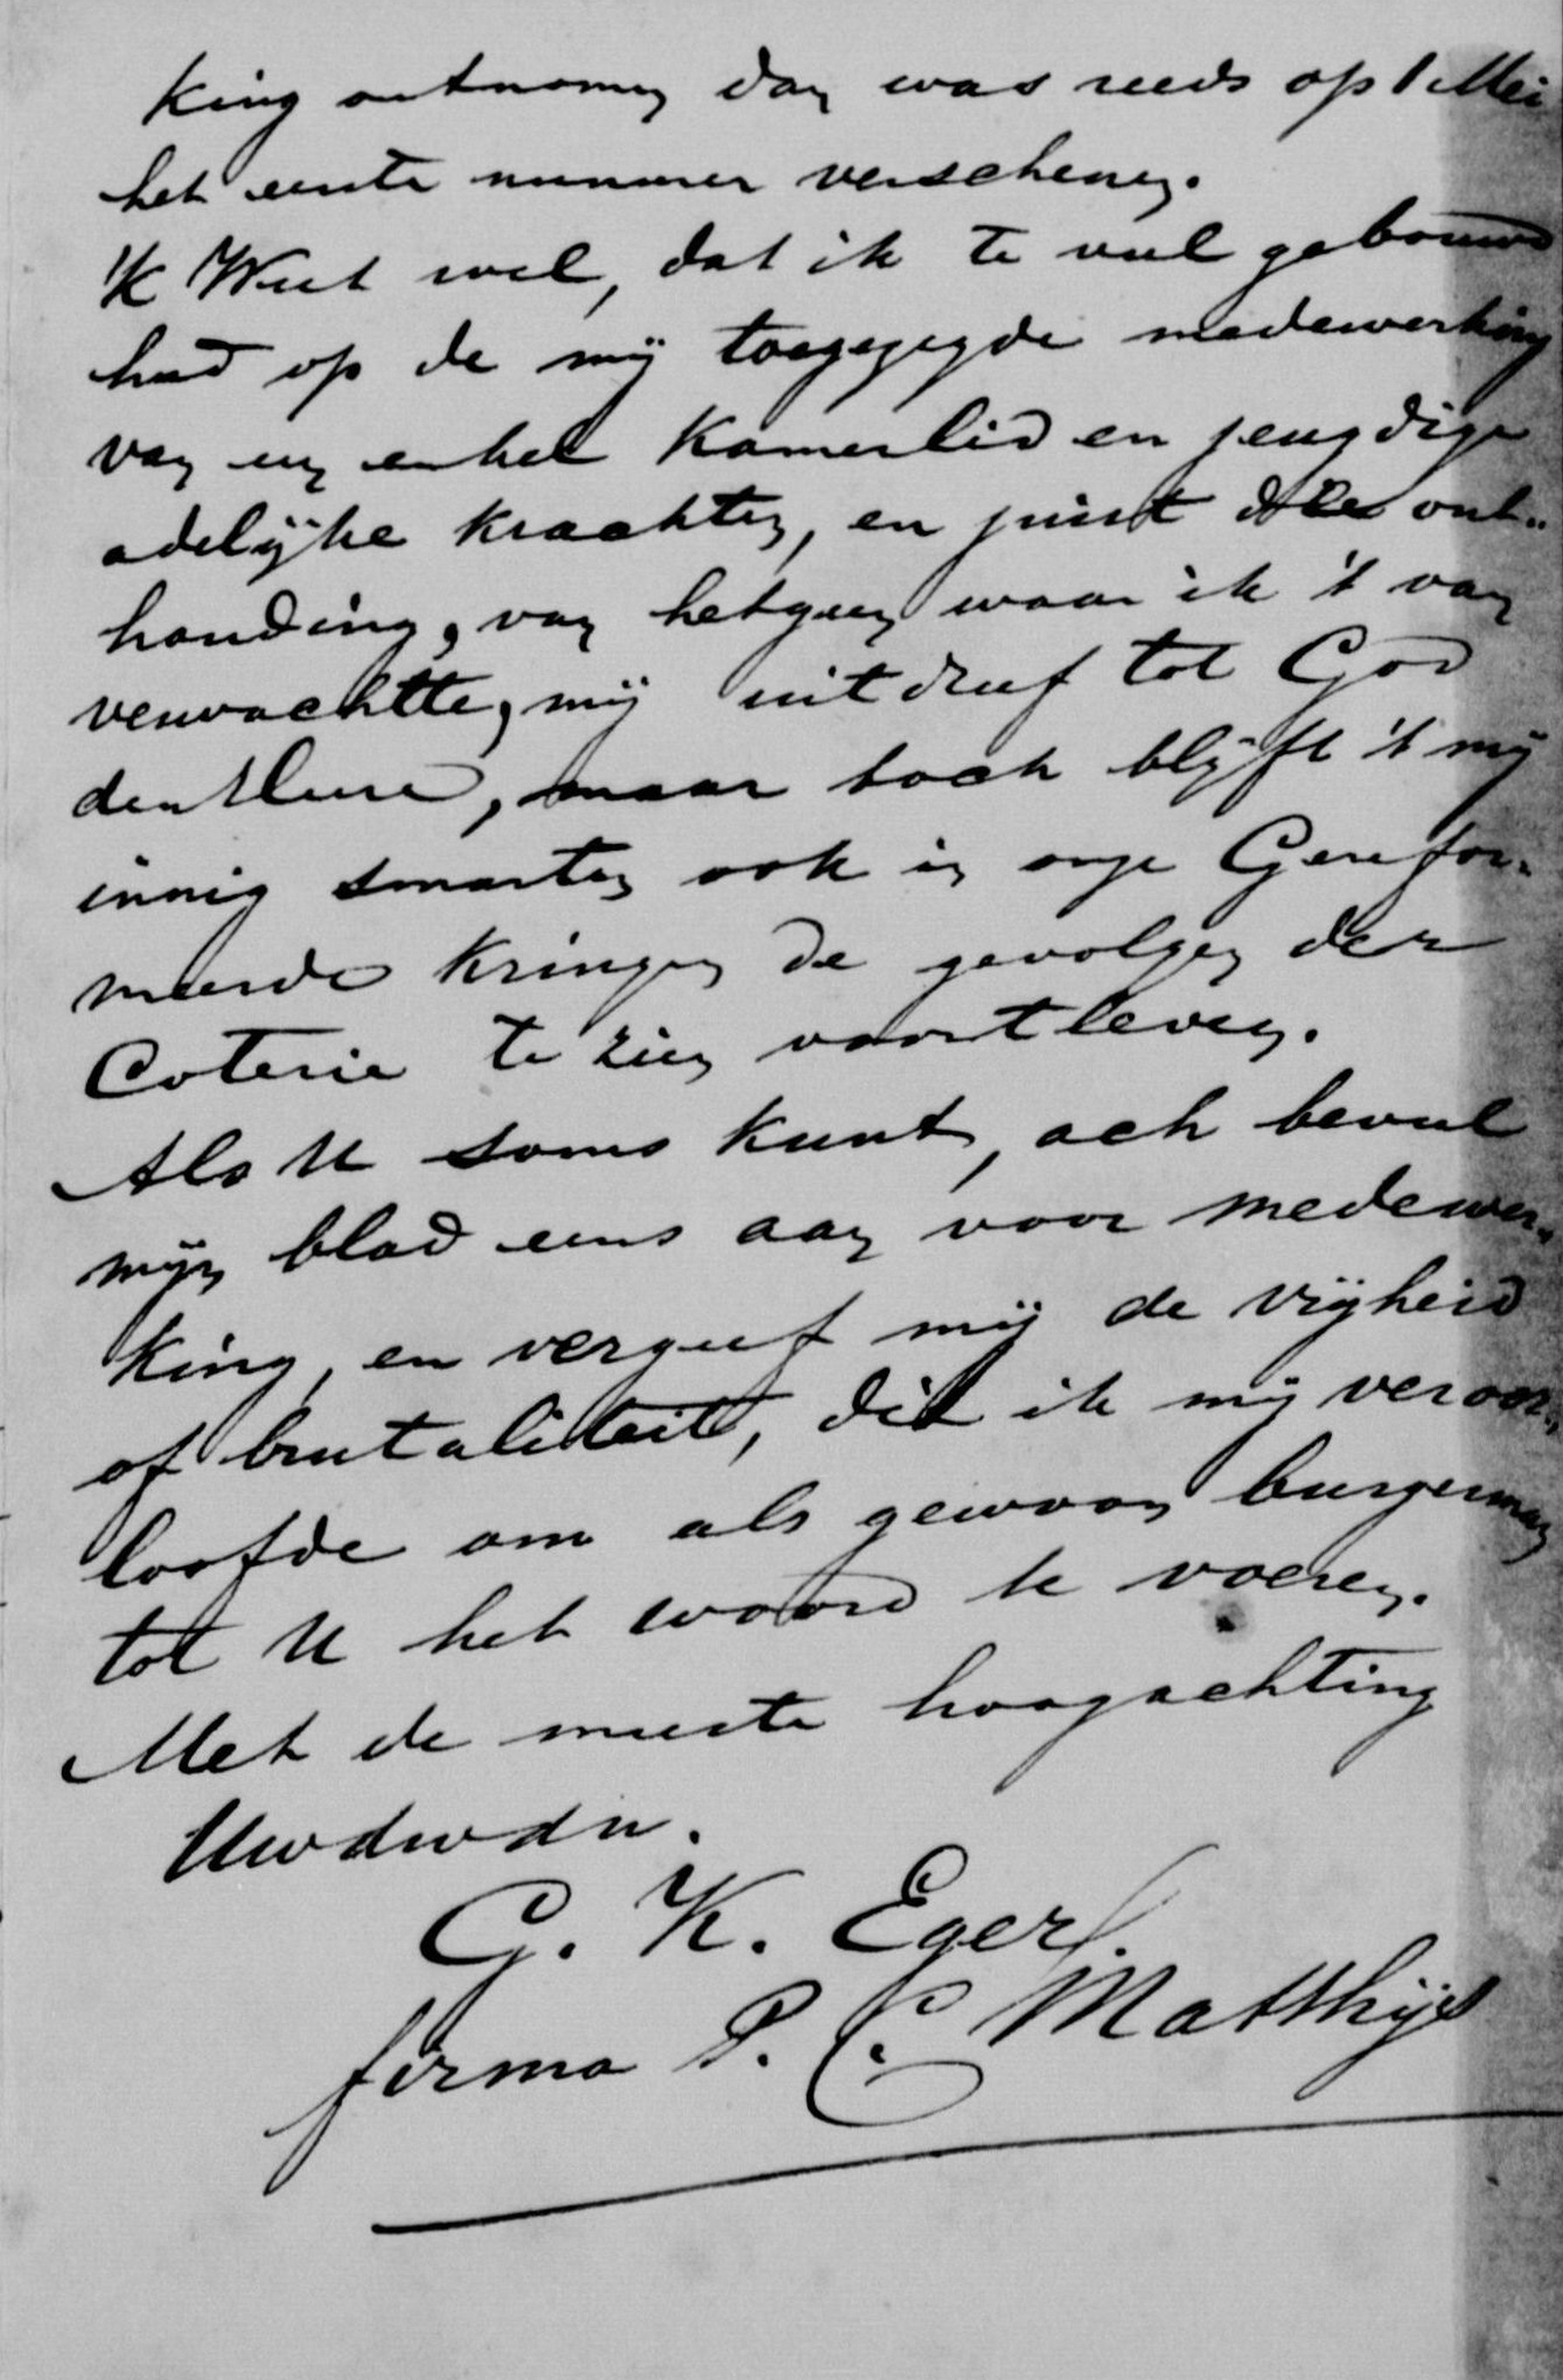 king ontnomen dan was reeds op 1 Mei
het eerste nummer verschenen.
Ik Weet wel, dat ik te veel gebouwd
had op de mij toegezegde medewerking
van een enkel Kamerlid en jeugdige
adelijke krachten, en juist die ont„
houding, van hetgeen waar ik 't van
verwachtte, mij uitdreef tot God
den Heere, maar toch blijft 't mij
innig smarten ook in onze Gerefor„
meerde kringen de gevolgen der
Coterie te zien voortleven.
Als U soms kunt, ach beveel
mijn blad eens aan voor medewer„
king, en vergeef mij de vrijheid
of brutaliteit, die ik mij veroor„
loofde om als gewoon burgerman
tot U het woord te voeren.
Met de meeste hoogachting
Uwdwdn.
G. K. Eger
firma P. C. Matthijs